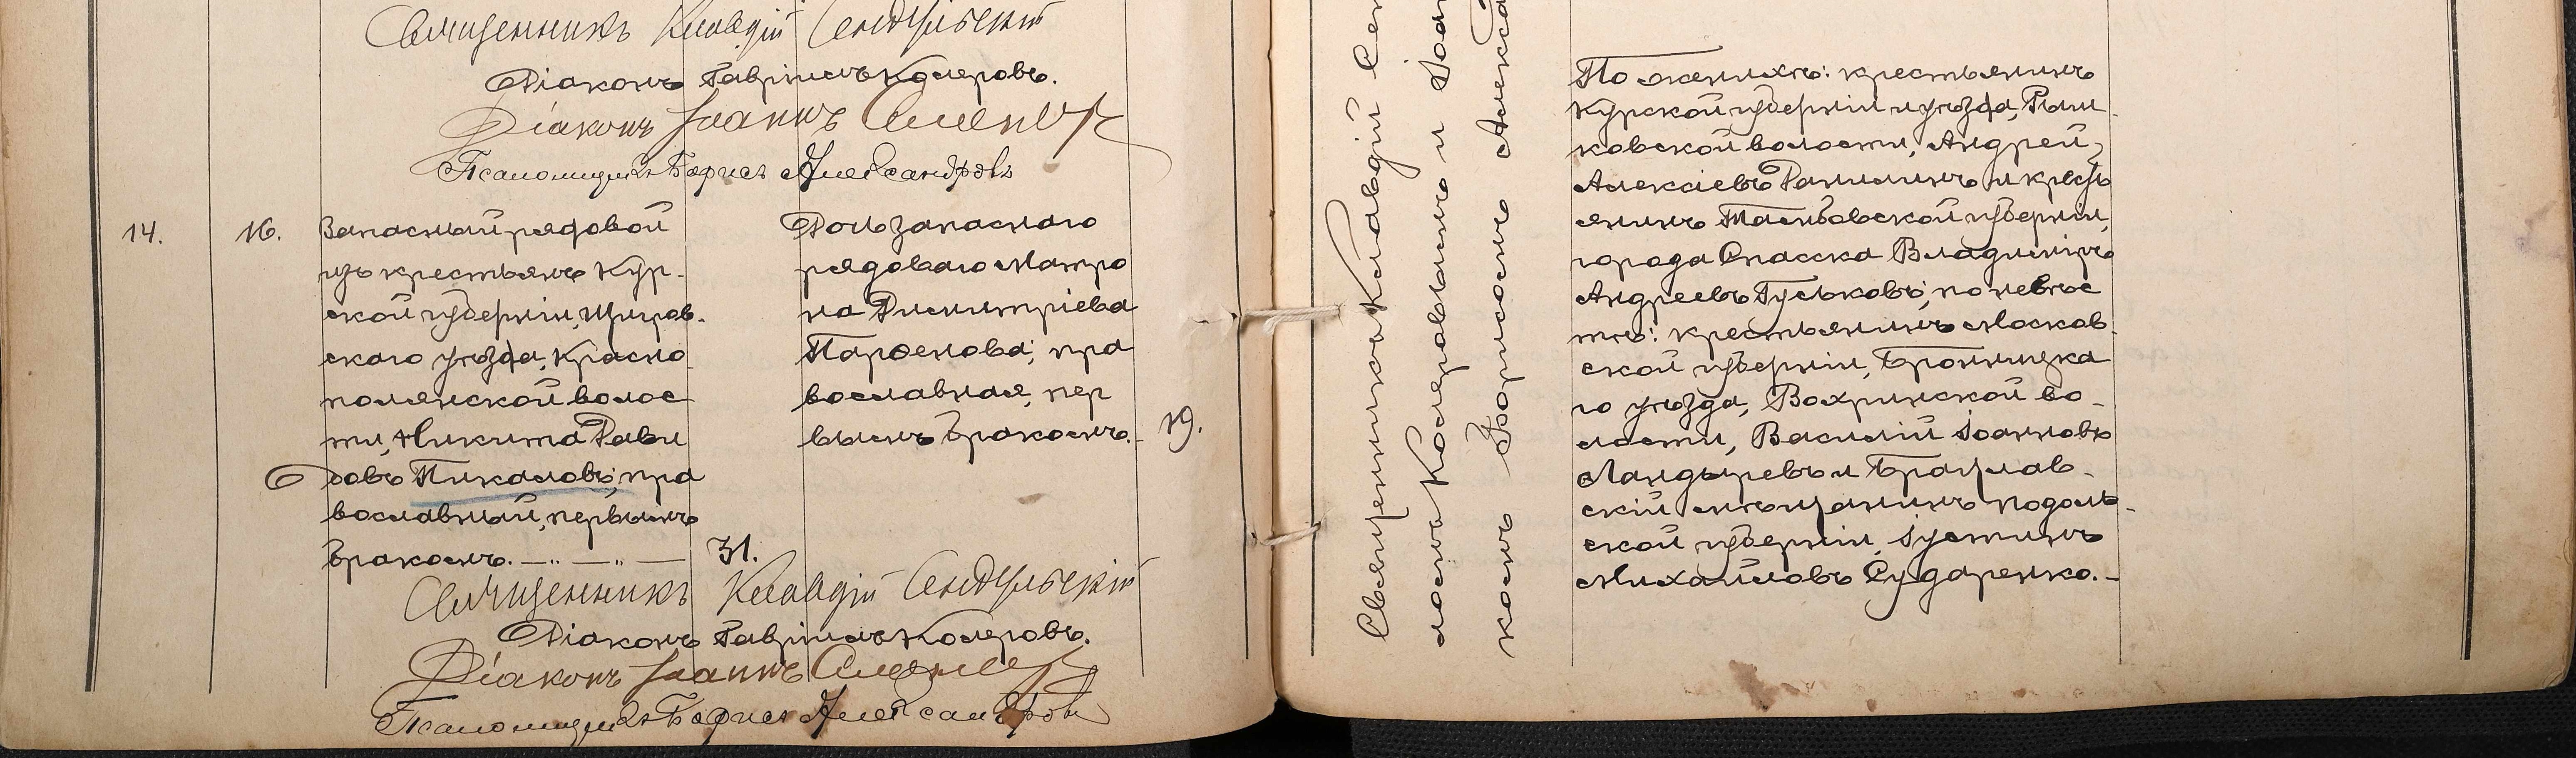 Священникъ Клавдій Сендульскій
Діаконъ Гавріилъ Колеровъ.
Діаконъ Іоаннъ
Псаломщикъ Борисъ Александровъ
14.
16.
Запасный рядовой
изъ крестьянъ Кур-
ской губерніи, Щигров-
скаго уѣзда, Красно-
полянской волос
ти, Никита Дави
довъ Пикаловъ; пра
вославный, первымъ
бракомъ. — „ — „ —
31.
Дочь запаснаго
рядоваго Матро
на Димитріева
Парѳенова; пра
вославная, пер
вымъ бракомъ.
19.
Священникъ Клавдій Сендульскій
Діаконъ Гавріилъ Колеровъ.
Діаконъ Іоаннъ
Псаломщикъ Борисъ Александровъ
Священникъ Клавдій Сен
ломъ Колеровымъ и Іоан
комъ Борисомъ Алекса
По женихѣ: крестьянинъ
Курской губерніи и уѣзда, Рыш-
ковской волости, Андрей
Алексіевъ Ранилинъ и кресть
янинъ Тамбовской губерніи,
города Спасска Владиміръ
Андреевъ Гуськовъ; по невѣс
тѣ: крестьянинъ Москов-
ской губерніи, Бронницка
го уѣзда, Вохринской во-
лости, Василій Іоанновъ
Ландыревъ и Брацлав-
скій мѣщанинъ Подоль-
ской губерніи, Іустинъ
Михайловъ Сударенко.—